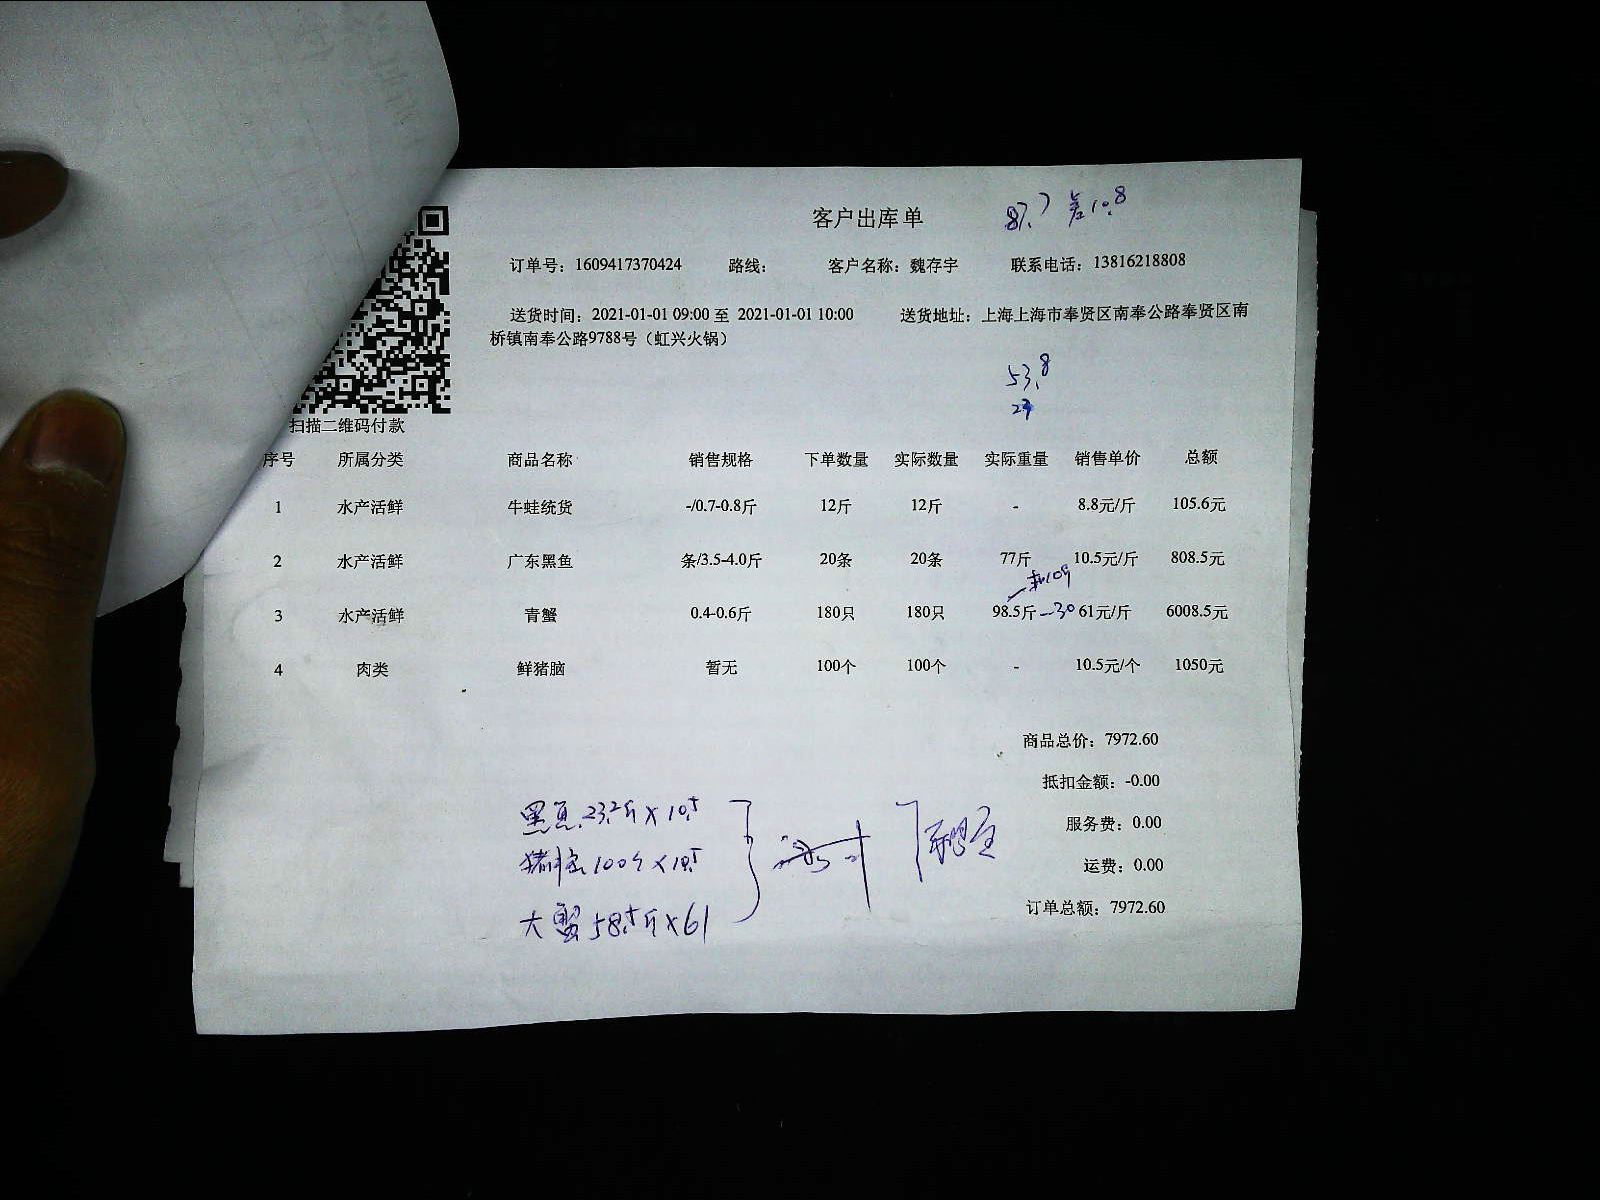 客户出库单 87.7 差10.8
订单号：1609417370424 路线： 客户名称：魏存宇 联系电话：13816218808
送货时间：2021-01-01 09:00 至 2021-01-01 10:00 送货地址：上海上海市奉贤区南奉公路奉贤区南
桥镇南奉公路9788号（虹兴火锅）
53.8
扫描二维码付款
序号 所属分类 商品名称 销售规格 下单数量 实际数量 实际重量 销售单价 总额
1 水产活鲜 牛蛙统货 -/0.7-0.8斤 12斤 12斤 - 8.8元/斤 105.6元
2 水产活鲜 广东黑鱼 条/3.5-4.0斤 20条 20条 77斤 10.5元/斤 808.5元
3 水产活鲜 青蟹 0.4-0.6斤 180只 180只 98.5斤 -30 61元/斤 6008.5元
4 肉类 鲜猪脑 暂无 100个 100个 - 10.5元/个 1050元
商品总价：7972.60
抵扣金额：-0.00
服务费：0.00
运费：0.00
订单总额：7972.60
黑鱼 23.2斤×10.5
猪脑 100个×10.5
大蟹 58.5斤×61